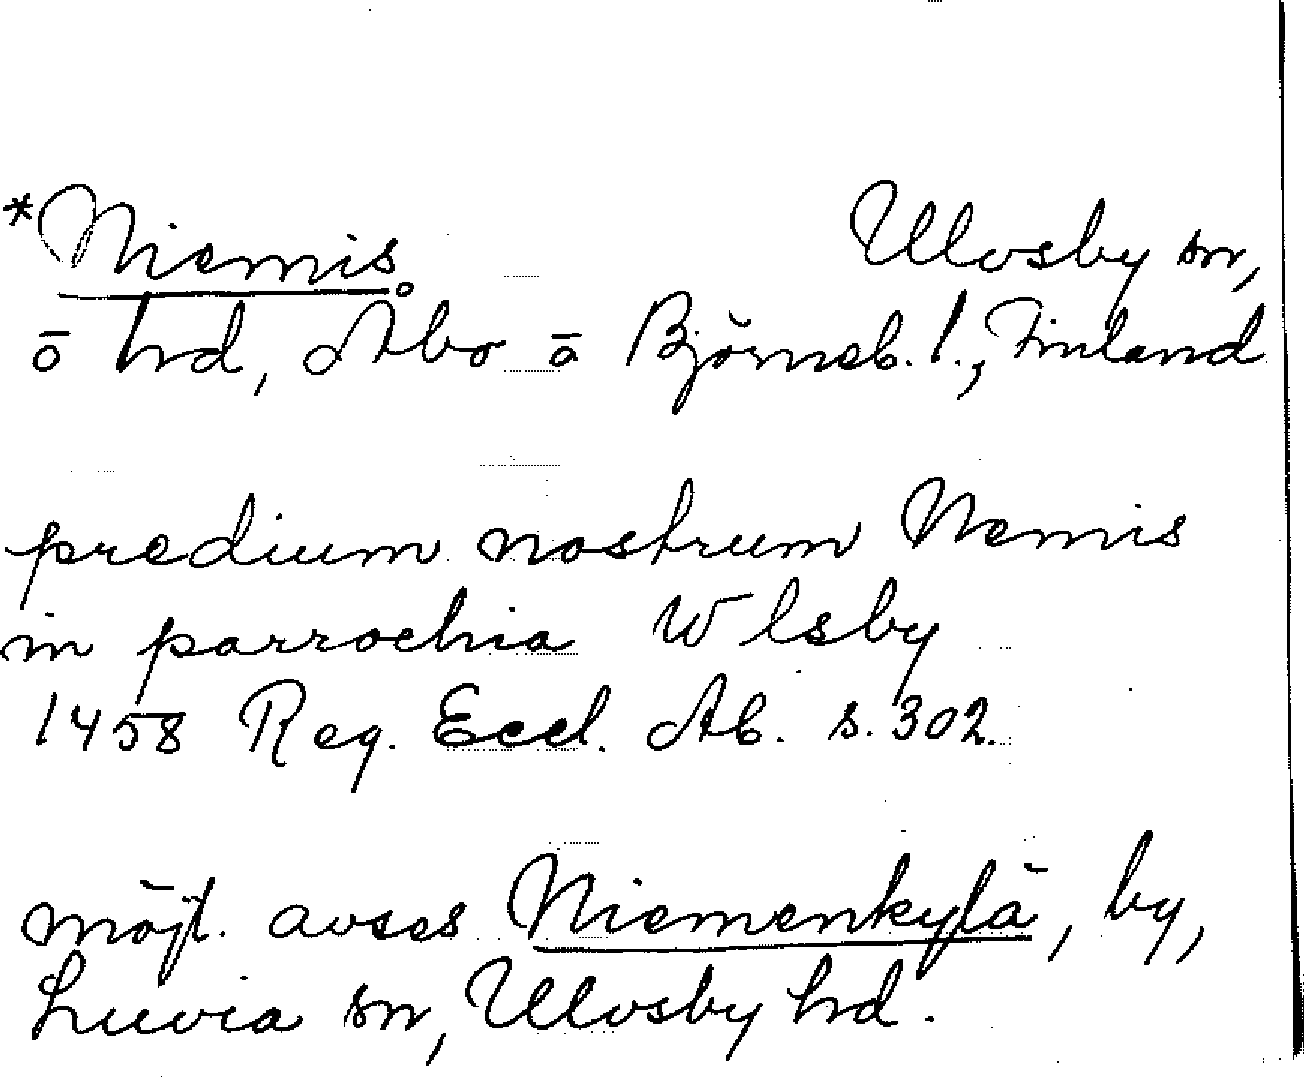 *Niemis. Ulvsby sn,
ö hd, Åbo ä Björneb. l., Finland
predium nostrum Nemis
in parrochia Wlsby
1458 Reg. Eccl. Ab. s. 302.
möjl. avses Niemenkylä, by,
Luvia sn, Ulvsby hd.